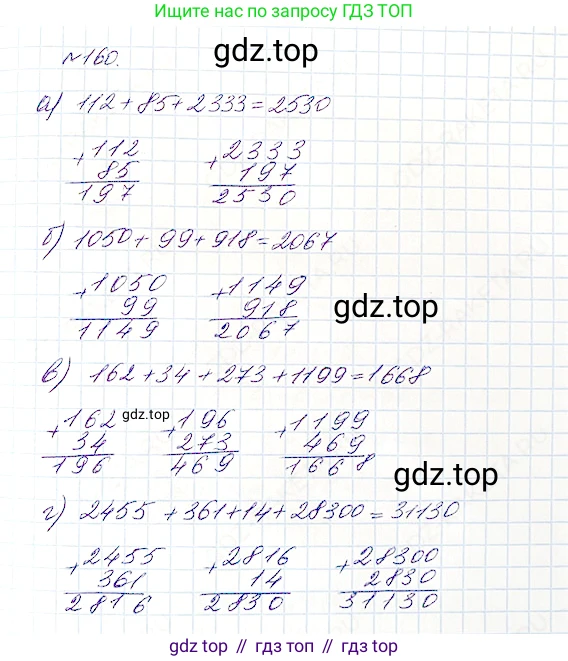 Ищите нас по запросу ГДЗ ТОП
№160.
gdz.top
а) 112+85+2333=2530
+112 +2333
85 197
197 2530
б) 1050+99+918=2067
+1050 +1149
99 918
1149 2067
gdz.top
в) 162+34+273+1199=1668
+162 +196 +1199
gdz.top
34 273 469
196 469 1668
gdz.top
г) 2455+361+14+28300=31130
+2455 +2816 +28300
361 14 2830
2816 2830 31130
gdz.top // гдз топ // гдз.top